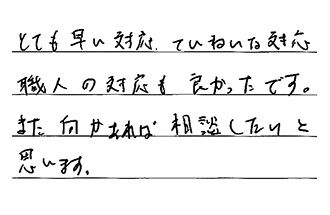 とても早い対応、ていねいな対応
職人の対応も良かったです。
また何かあれば相談したいと
思います。